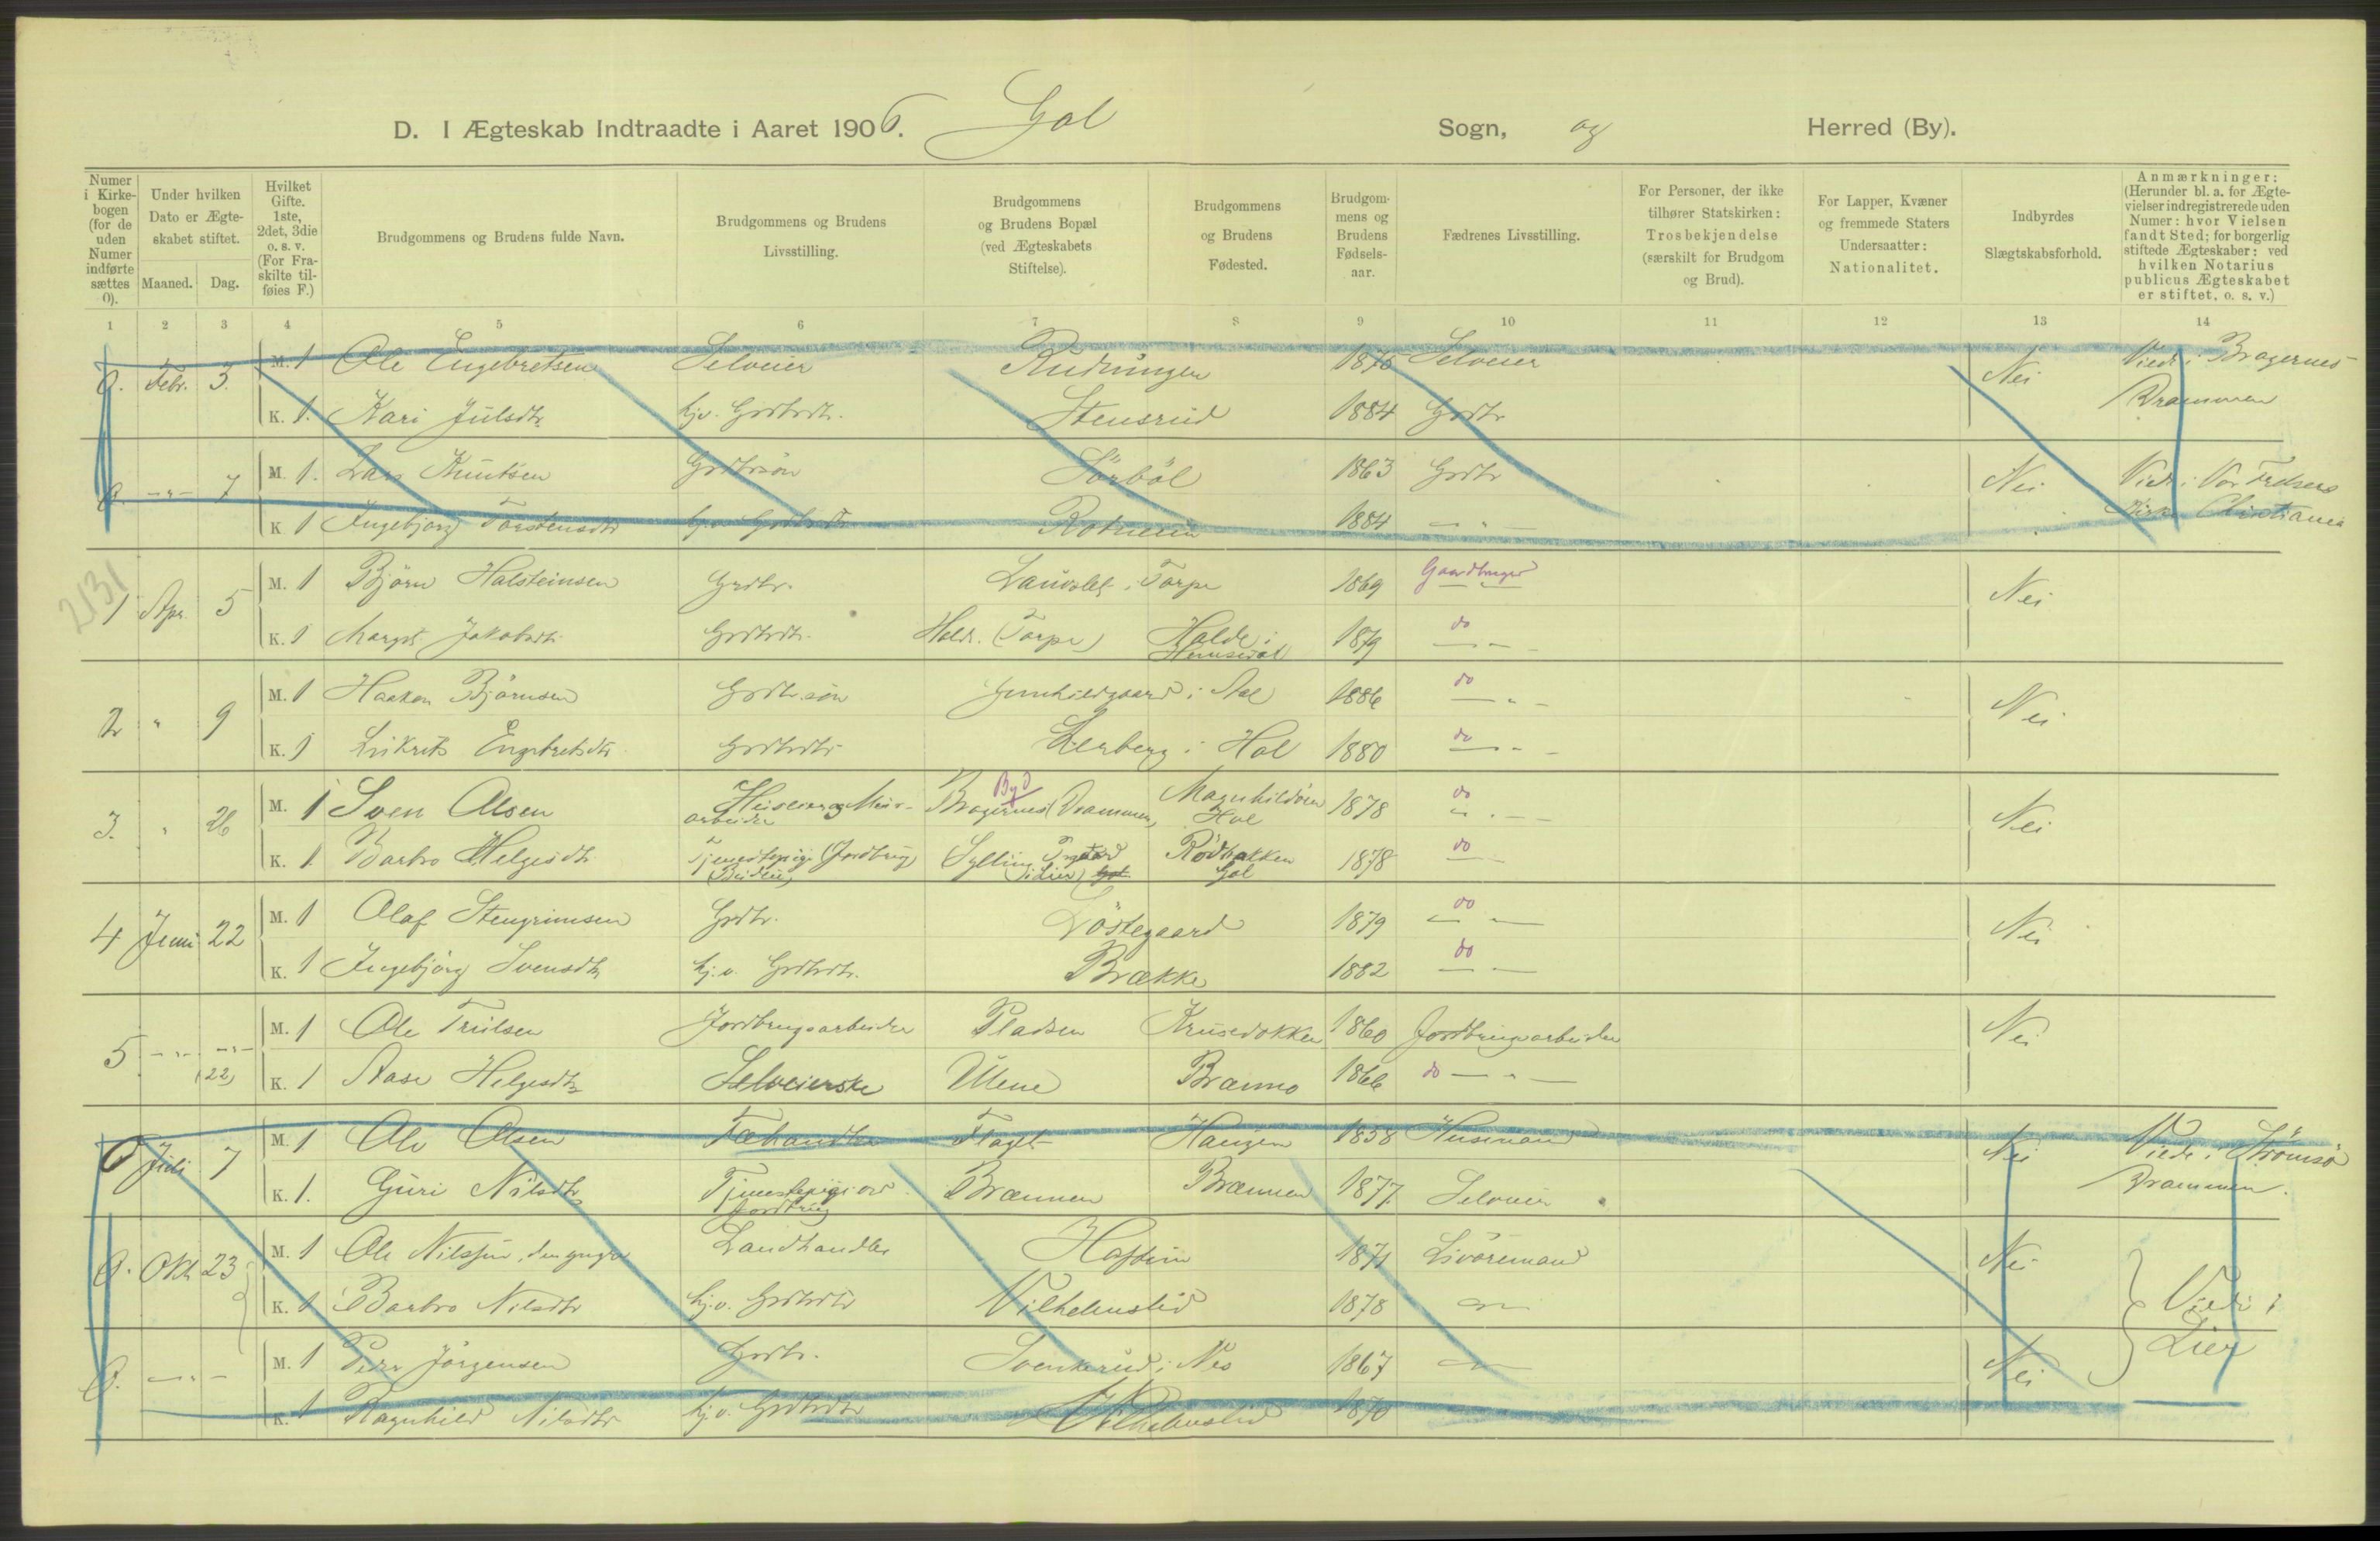 D. I Ægteskab Indtraadte i Aaret 1906. Gol Sogn, og Herred (By).
Numer i Kirke-bogen (for de uden Numer indførte sættes 0).
Under hvilken Dato er Ægte-skabet stiftet.
Maaned. Dag.
Hvilket Gifte. 1ste, 2det, 3die o. s. v. (For Fra-skilte til-føies F.)
Brudgommens og Brudens fulde Navn.
Brudgommens og Brudens Livsstilling.
Brudgommens og Brudens Bopæl (ved Ægteskabets Stiftelse).
Brudgommens og Brudens Fødested.
Brudgom-mens og Brudens Fødsels-aar.
Fædrenes Livsstilling.
For Personer, der ikke tilhører Statskirken: Trosbekjendelse (særskilt for Brudgom og Brud).
For Lapper, Kvæner og fremmede Staters Undersaatter: Nationalitet.
Indbyrdes Slægtskabsforhold.
Anmærkninger: (Herunder bl. a. for Ægte-vielser indregistrerede uden Numer: hvor Vielsen fandt Sted; for borgerlig stiftede Ægteskaber: ved hvilken Notarius publicus Ægteskabet er stiftet, o. s. v.)
1 2 3 4 5 6 7 8 9 10 11 12 13 14
0. Febr. 3. M. 1 Ole Engebretsen Selveier Rudningen 1876 Selveier Nei Viede i Bragernes
K. 1. Kari Julsdtr. hjv. Grdbrdtr. Stensrud 1884 Grdbr Drammen
0. —"— 7 M. 1. Lars Knutsen Grdbrsön Sörböl 1863 Grdbr Nei Viede i Vor Frelsers
K. 1 Ingebjörg Torstensdtr hj.v. Grdbrdtr Rotneim 1884 —"— Kirke Christiania
2131
1 Apr. 5 M. 1 Björn Halsteinsen Grdbr. Lauvslet i Torpe 1869 Gaardbruger Nei
K. 1 Margit Jakobsdtr. Grdbrdtr. Holde (Torpe) Holde i Hemsedal 1879 do
2 " 9 M. 1 Haakon Björnsen Grdbr.sön Gunhildgaard i Aal 1886 do —"— Nei
K. 1 Engebretsdtr Grdbrdtr Lerberg i Hol 1880 do —"—
3. " 26 M. 1 Sven Olsen Huseier og Mur-arbeider Byd Bragernes (Drammen) Magnhildöen Hol 1878 do Nei
K. 1 Barbro Helgesdtr Tjenestepige (Jordbrug) Sylling i Lier Rödbakken Gol 1878 do
4 Juni 22 M. 1 Olaf Stengrimsen Grdbr. Löstegaard 1879 do Nei
K. 1 Ingebjörg Svensdtr hj.v. Grdbrdtr. Brække 1882 do
5 —"— —"— (22) M. 1 Ole Trulsen Jordbrugsarbeider Pladsen Krusedokken 1860 Jordbrugsarbeider Nei
K. 1 Aase Helgesdtr Selveierske Ulene Branno 1866 do —"—
0 Juli 7 M. 1 Ole Olsen Fæhandler Flaget Haugen 1858 Husmand Nei Viede i Strömsö
K. 1. Guri Nilsdtr Tjenestepige ved Jordbrug Brænnen Brænnen 1877. Selveier Drammen.
0. Okt. 23 M. 1 Ole Nilssen, den yngre Landhandler Hoftun 1871 Livöremand Nei Viede i
K. 1 Barbro Nilsdtr hj.v. Grdbrdtr Vilhelmslid 1878 Lier
0. —"— M. 1 Peder Jörgensen Grdbr. Svenkerud i Nes 1867 Nei
K. 1 Ragnhild Nilsdtr hj.v. Grdbrdtr Vilhelmslid 1870